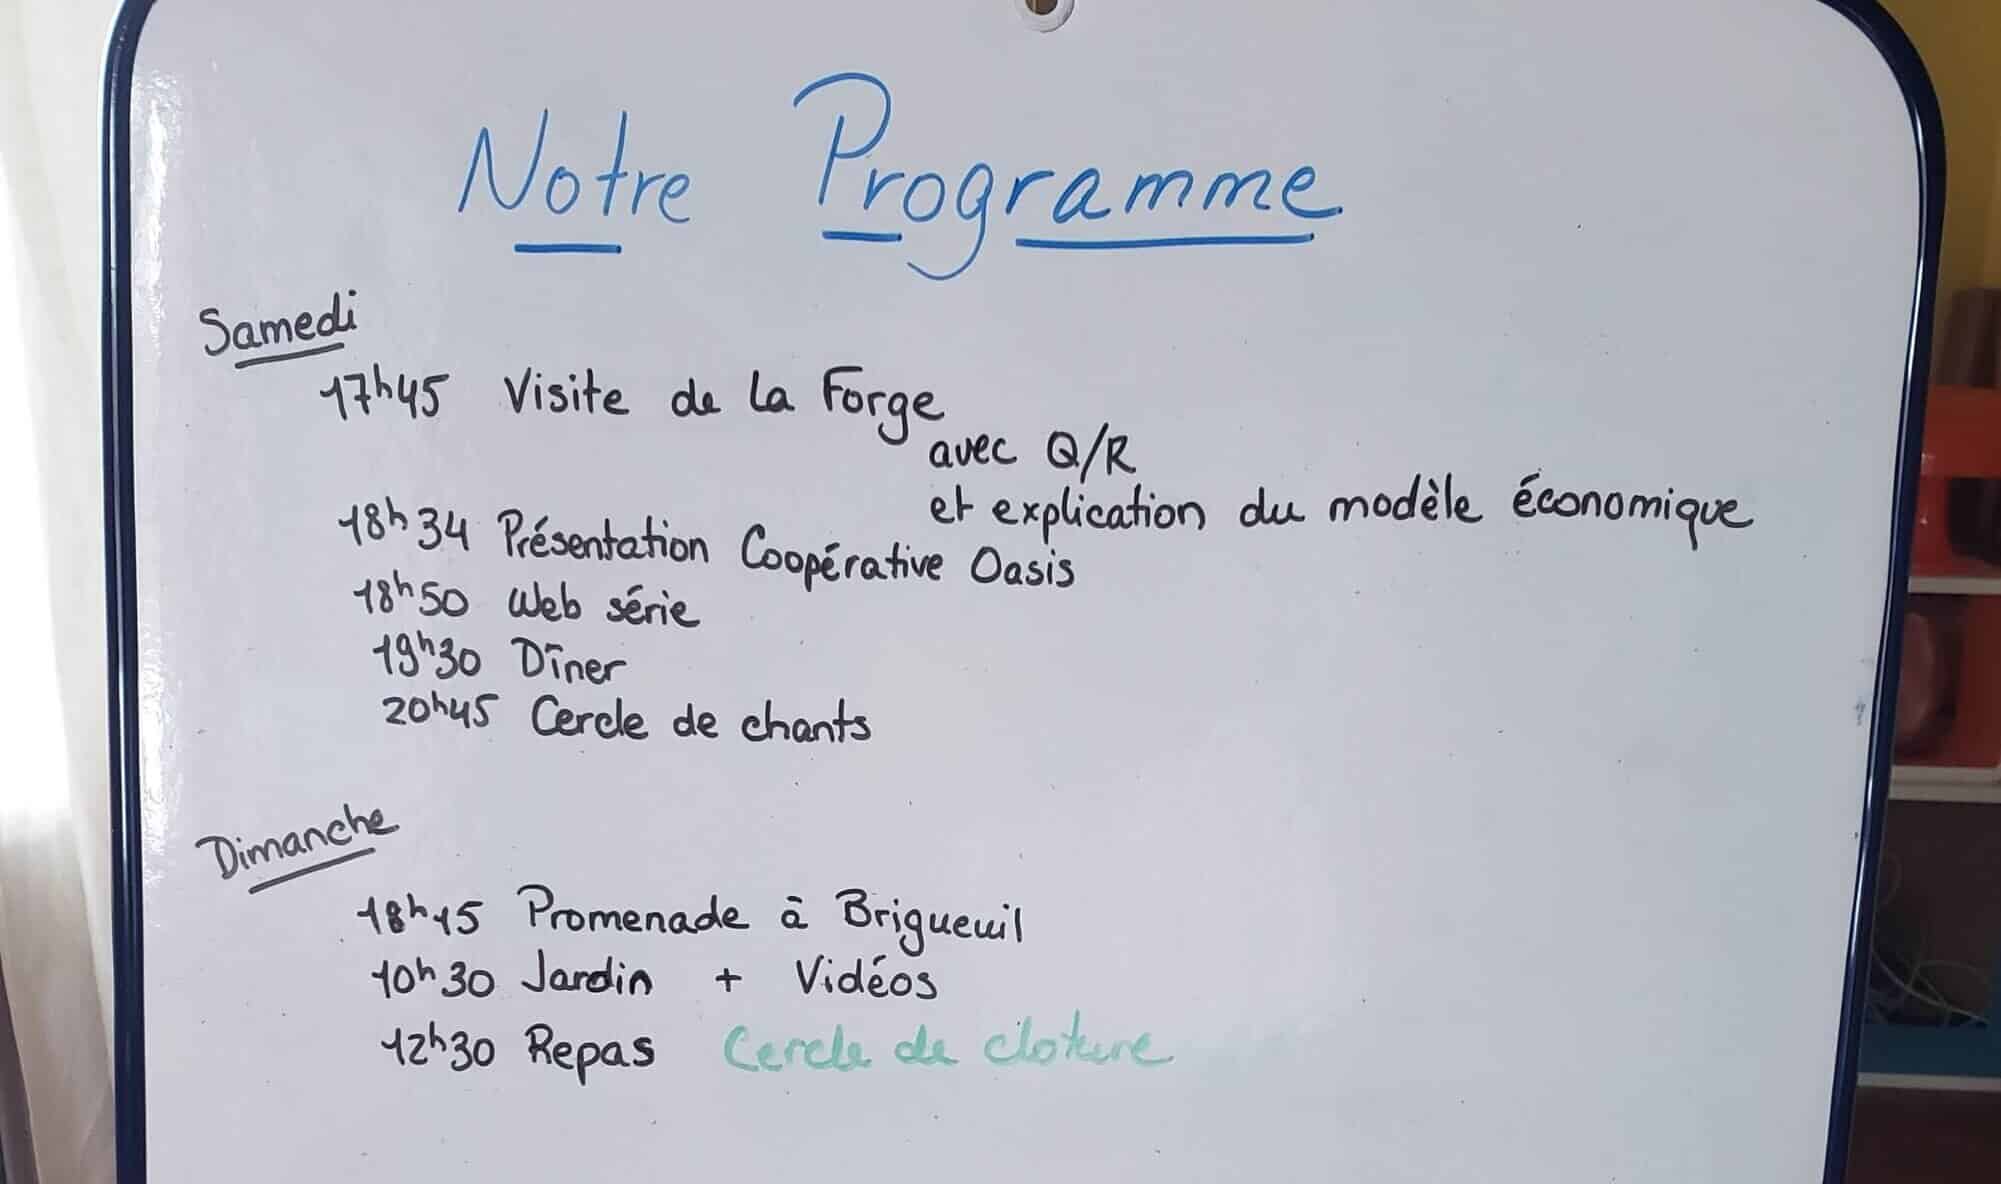 Notre Programme
Samedi
17h45 Visite de la Forge
avec Q/R
et explication du modèle économique
18h34 Présentation Coopérative Oasis
18h50 Web série
19h30 Dîner
20h45 Cercle de chants
Dimanche
18h15 Promenade à Brigueuil
10h30 Jardin + Vidéos
12h30 Repas Cercle de cloture